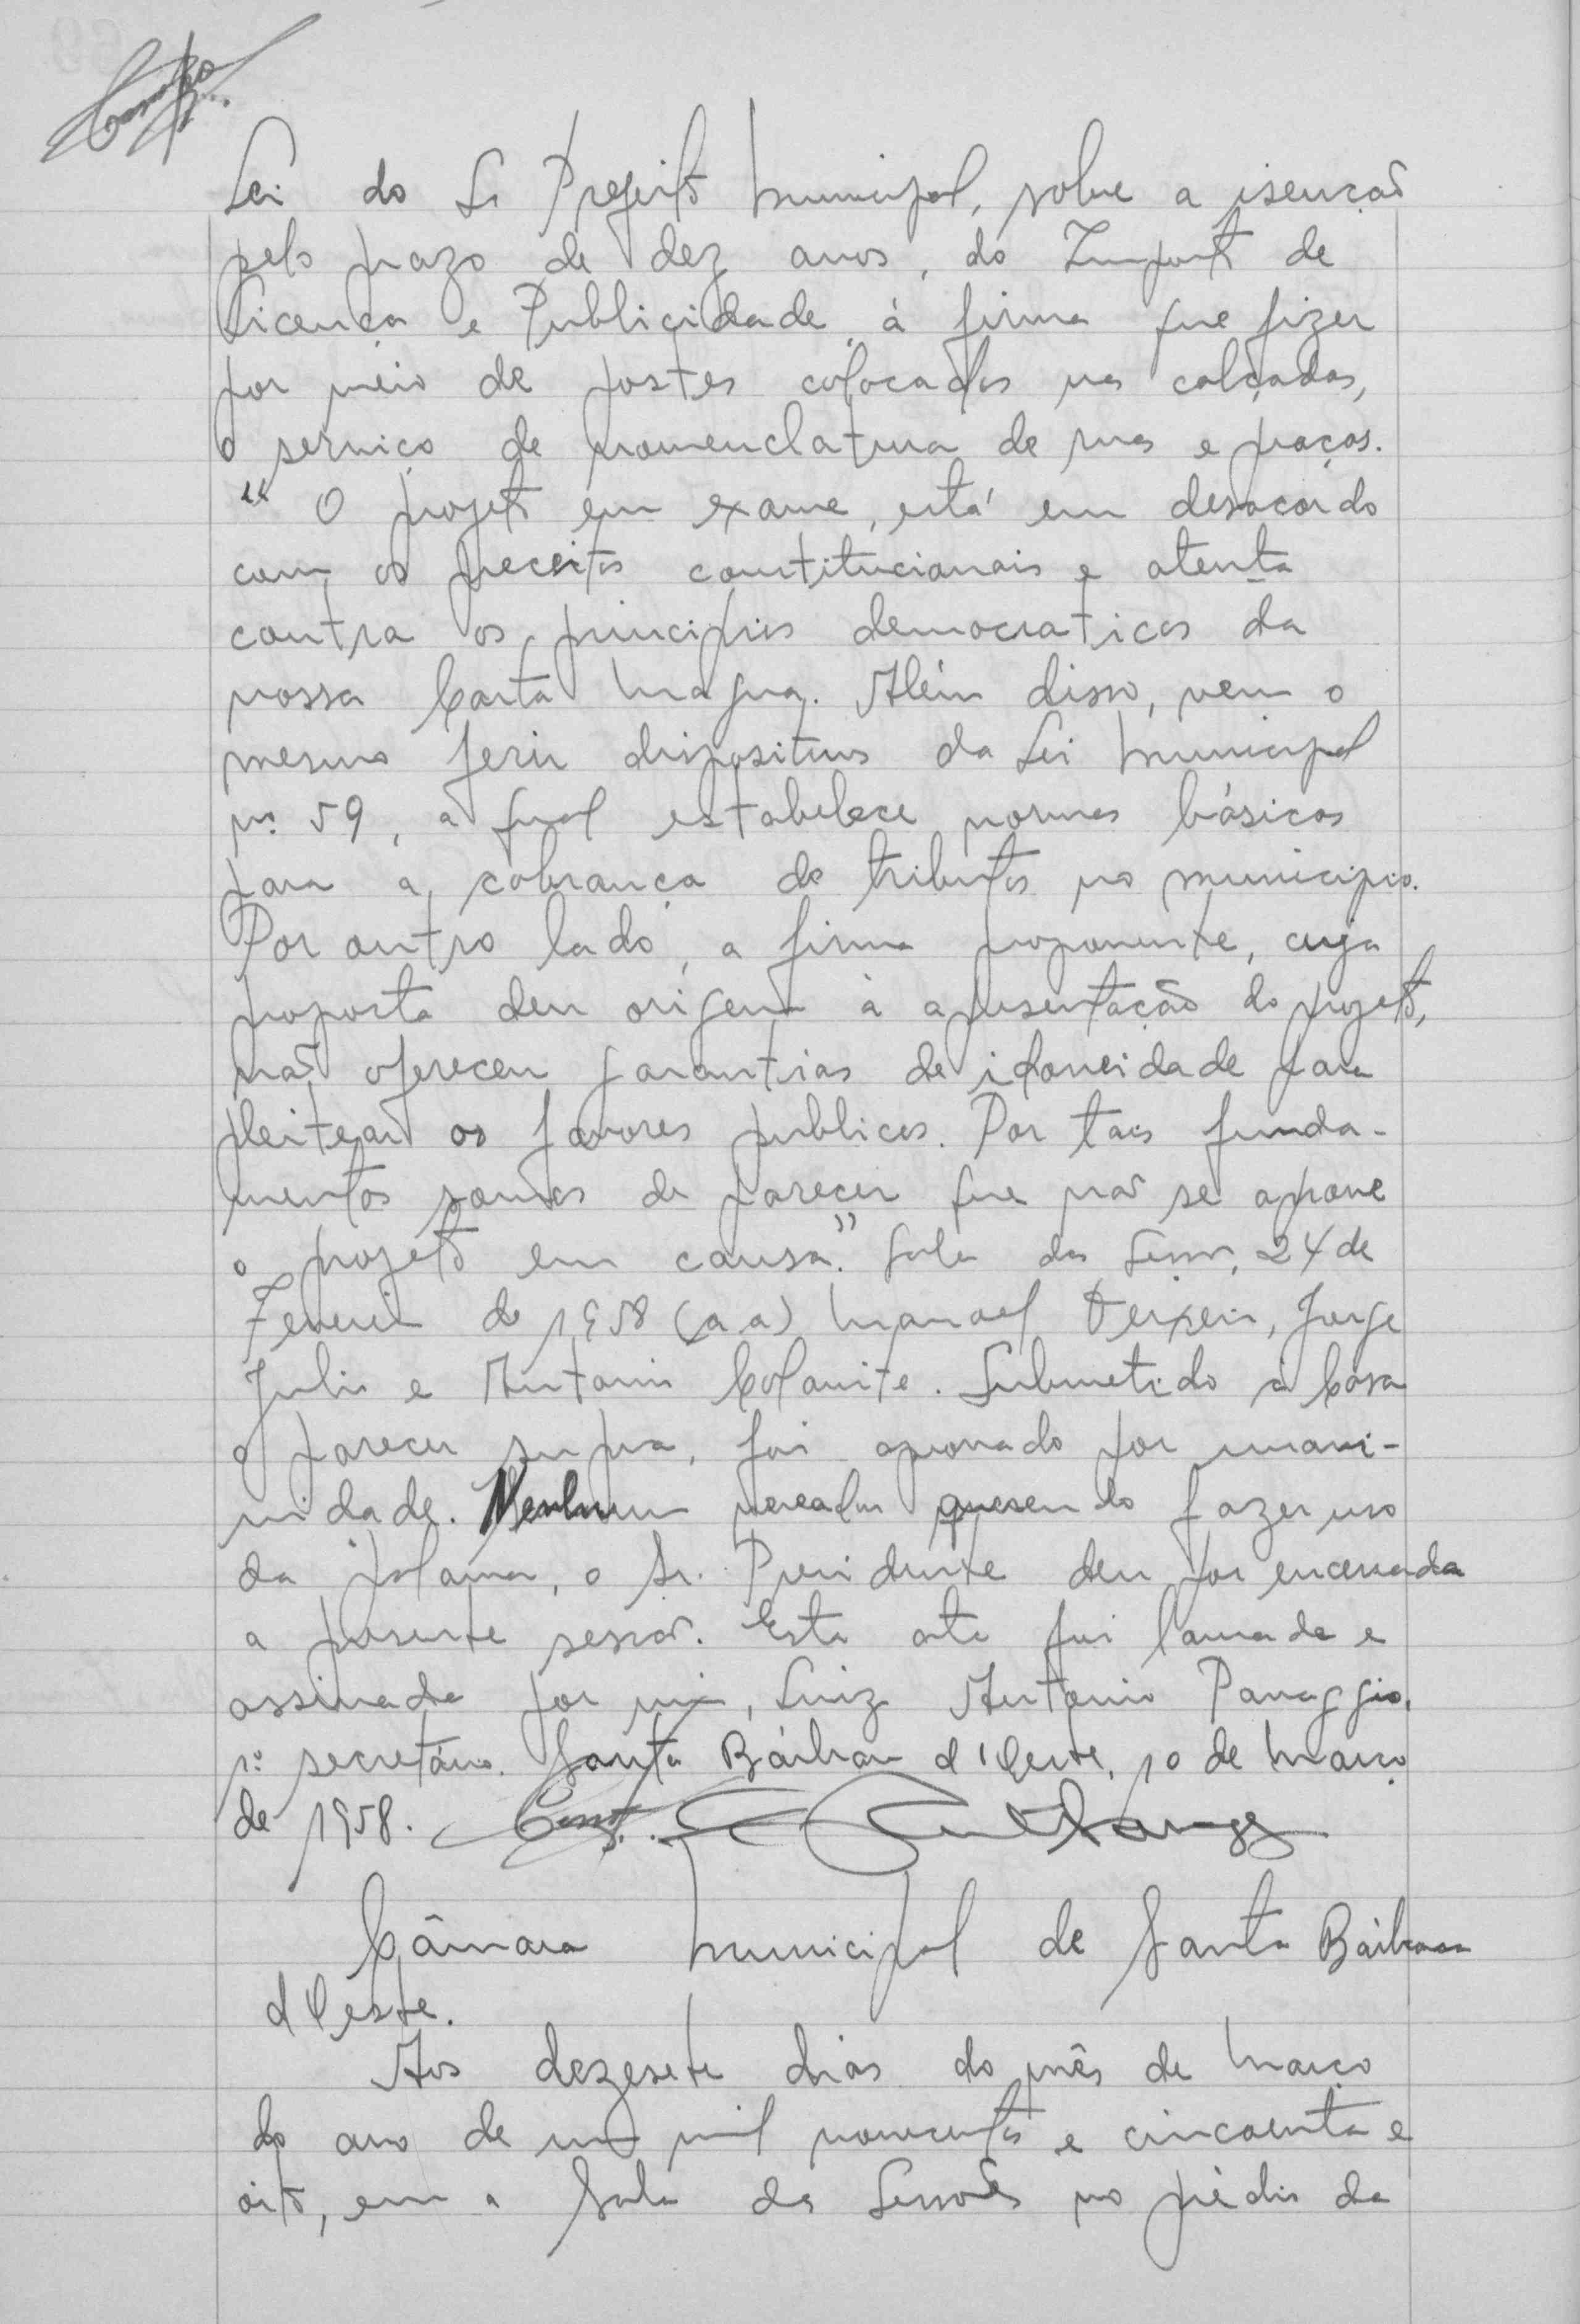 Lei do Sr Prefeito Municipal, sobre a isenção
pelo prazo de dez anos, do Imposto de
Licença e Publicidade, á firma que fizer
por meio de postes colocados nas calçadas,
o serviço de nomenclatura de ruas e praças.
"O projeto em exame, está em desacordo
com os preceitos constitucionais e atenta
contra os principios democraticos da
nossa Carta Magna. Além disso, vem o
mesmo ferir dispositivos da Lei Municipal
nº 59, a qual estabelece normas básicas
para a cobrança de tributos no municipio.
Por outro lado, a firma proponente, cuja
proposta deu origem à apresentação do projeto,
não ofereceu garantias de idoneidade para
pleitear os favores publicos. Por tais funda-
mentos somos de parecer que não se aprove
o projeto em causa." Sala das Sessões, 24 de
Fevereiro de 1958 (a a) Manoel Teixeira, Jorge
Julio e Antonio Colanite. Submetido à Casa
o parecer supra, foi aprovado por unani-
midade. Nenhum vereador querendo fazer uso
da palavra, o Sr. Presidente deu por encerrada
a presente sessão. Esta ata foi lavrada e
assinada por mim, Luiz Antonio Panaggio,
1º secretário. Santa Bárbara d'Oeste, 10 de Março
de 1958.
Câmara Municipal de Santa Bárbara
d'Oeste.
Aos dezesete dias do mês de Março
do ano de um mil novecentos e cincoenta e
oito, em a Sala das Sessões no prédio da